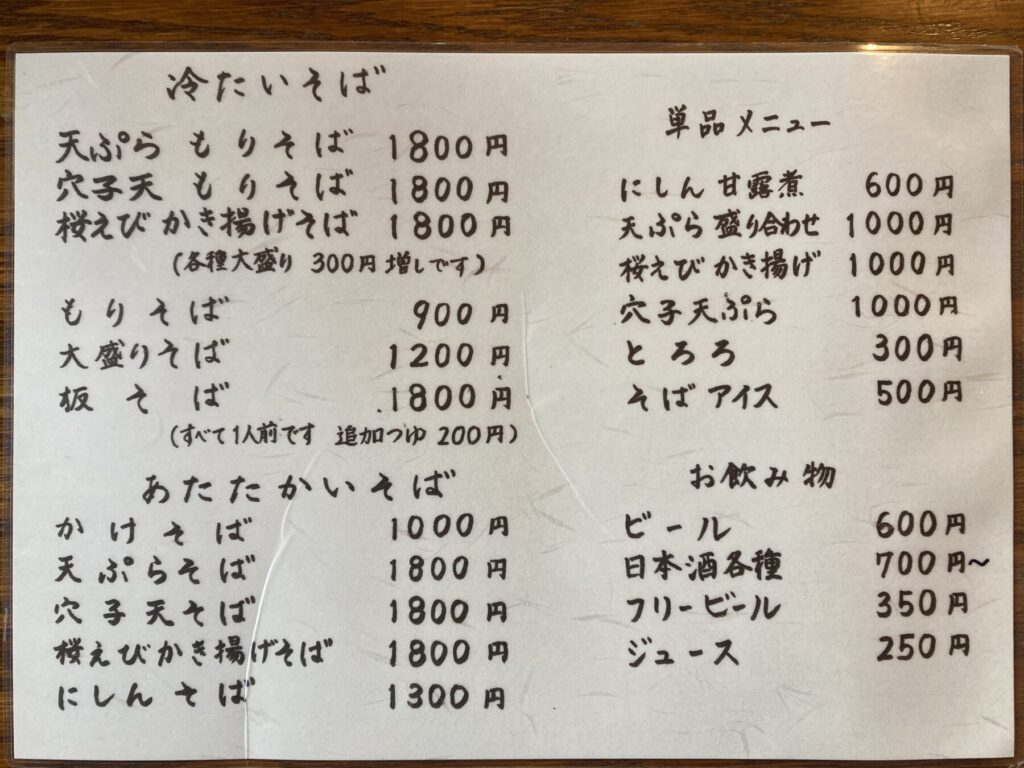 冷たいそば
天ぷら もりそば 1800円
穴子天 もりそば 1800円
桜えびかき揚げそば 1800円
(各種大盛り 300円増しです)
もりそば 900円
大盛りそば 1200円
板そば 1800円
(すべて1人前です 追加つゆ 200円)
あたたかいそば
かけそば 1000円
天ぷらそば 1800円
穴子天そば 1800円
桜えびかき揚げそば 1800円
にしんそば 1300円
単品メニュー
にしん甘露煮 600円
天ぷら盛り合わせ 1000円
桜えびかき揚げ 1000円
穴子天ぷら 1000円
とろろ 300円
そばアイス 500円
お飲み物
ビール 600円
日本酒各種 700円〜
フリービール 350円
ジュース 250円